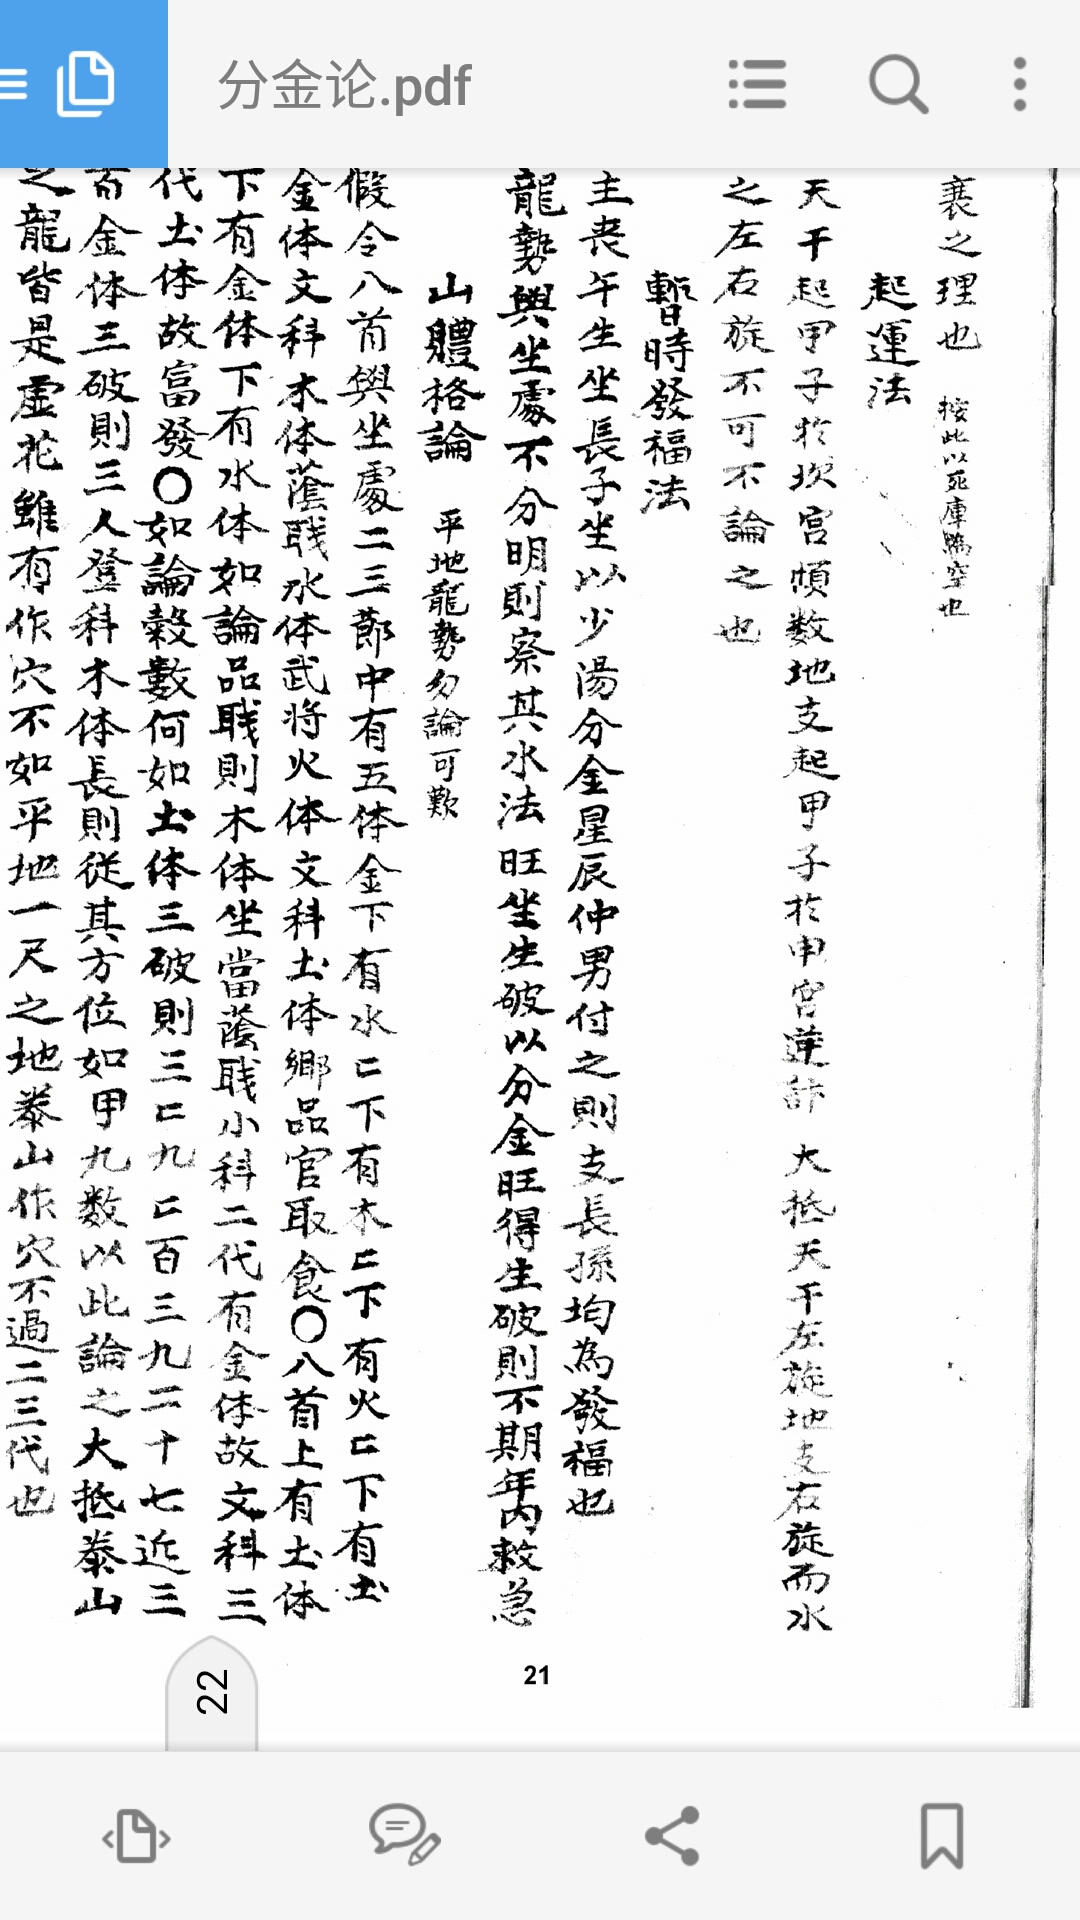 分金论.pdf
衰之理也 按此以死庫為空也
起運法
天干起甲子於坎宮順数地支起甲子於申宮逆計 大抵天干左旋地支右旋而水
之左右旋不可不論之也
暫時發福法
主丧午生坐長子坐以少湯分金星辰仲男付之則支長孫均為發福也
龍勢與坐處不分明則察其水法旺坐生破以分金旺得生破則不期年内救急
山體格論 平地龍勢勿論可歎
假令八首與坐處二三節中有五体金下有水匸下有木匸下有火匸下有土
金体文科木体蔭職水体武将火体文科土体鄉品官取食〇八首上有土体
下有金体下有水体如論品職則木体坐當蔭職小科二代有金体故文科三
代土体故富發〇如論穀數何如土体三破則三匸九匸百三九二十七近三
百金体三破則三人登科木体長則從其方位如甲九数以此論之大抵泰山
之龍皆是虛花雖有作穴不如平地一尺之地泰山作穴不過二三代也
21
22